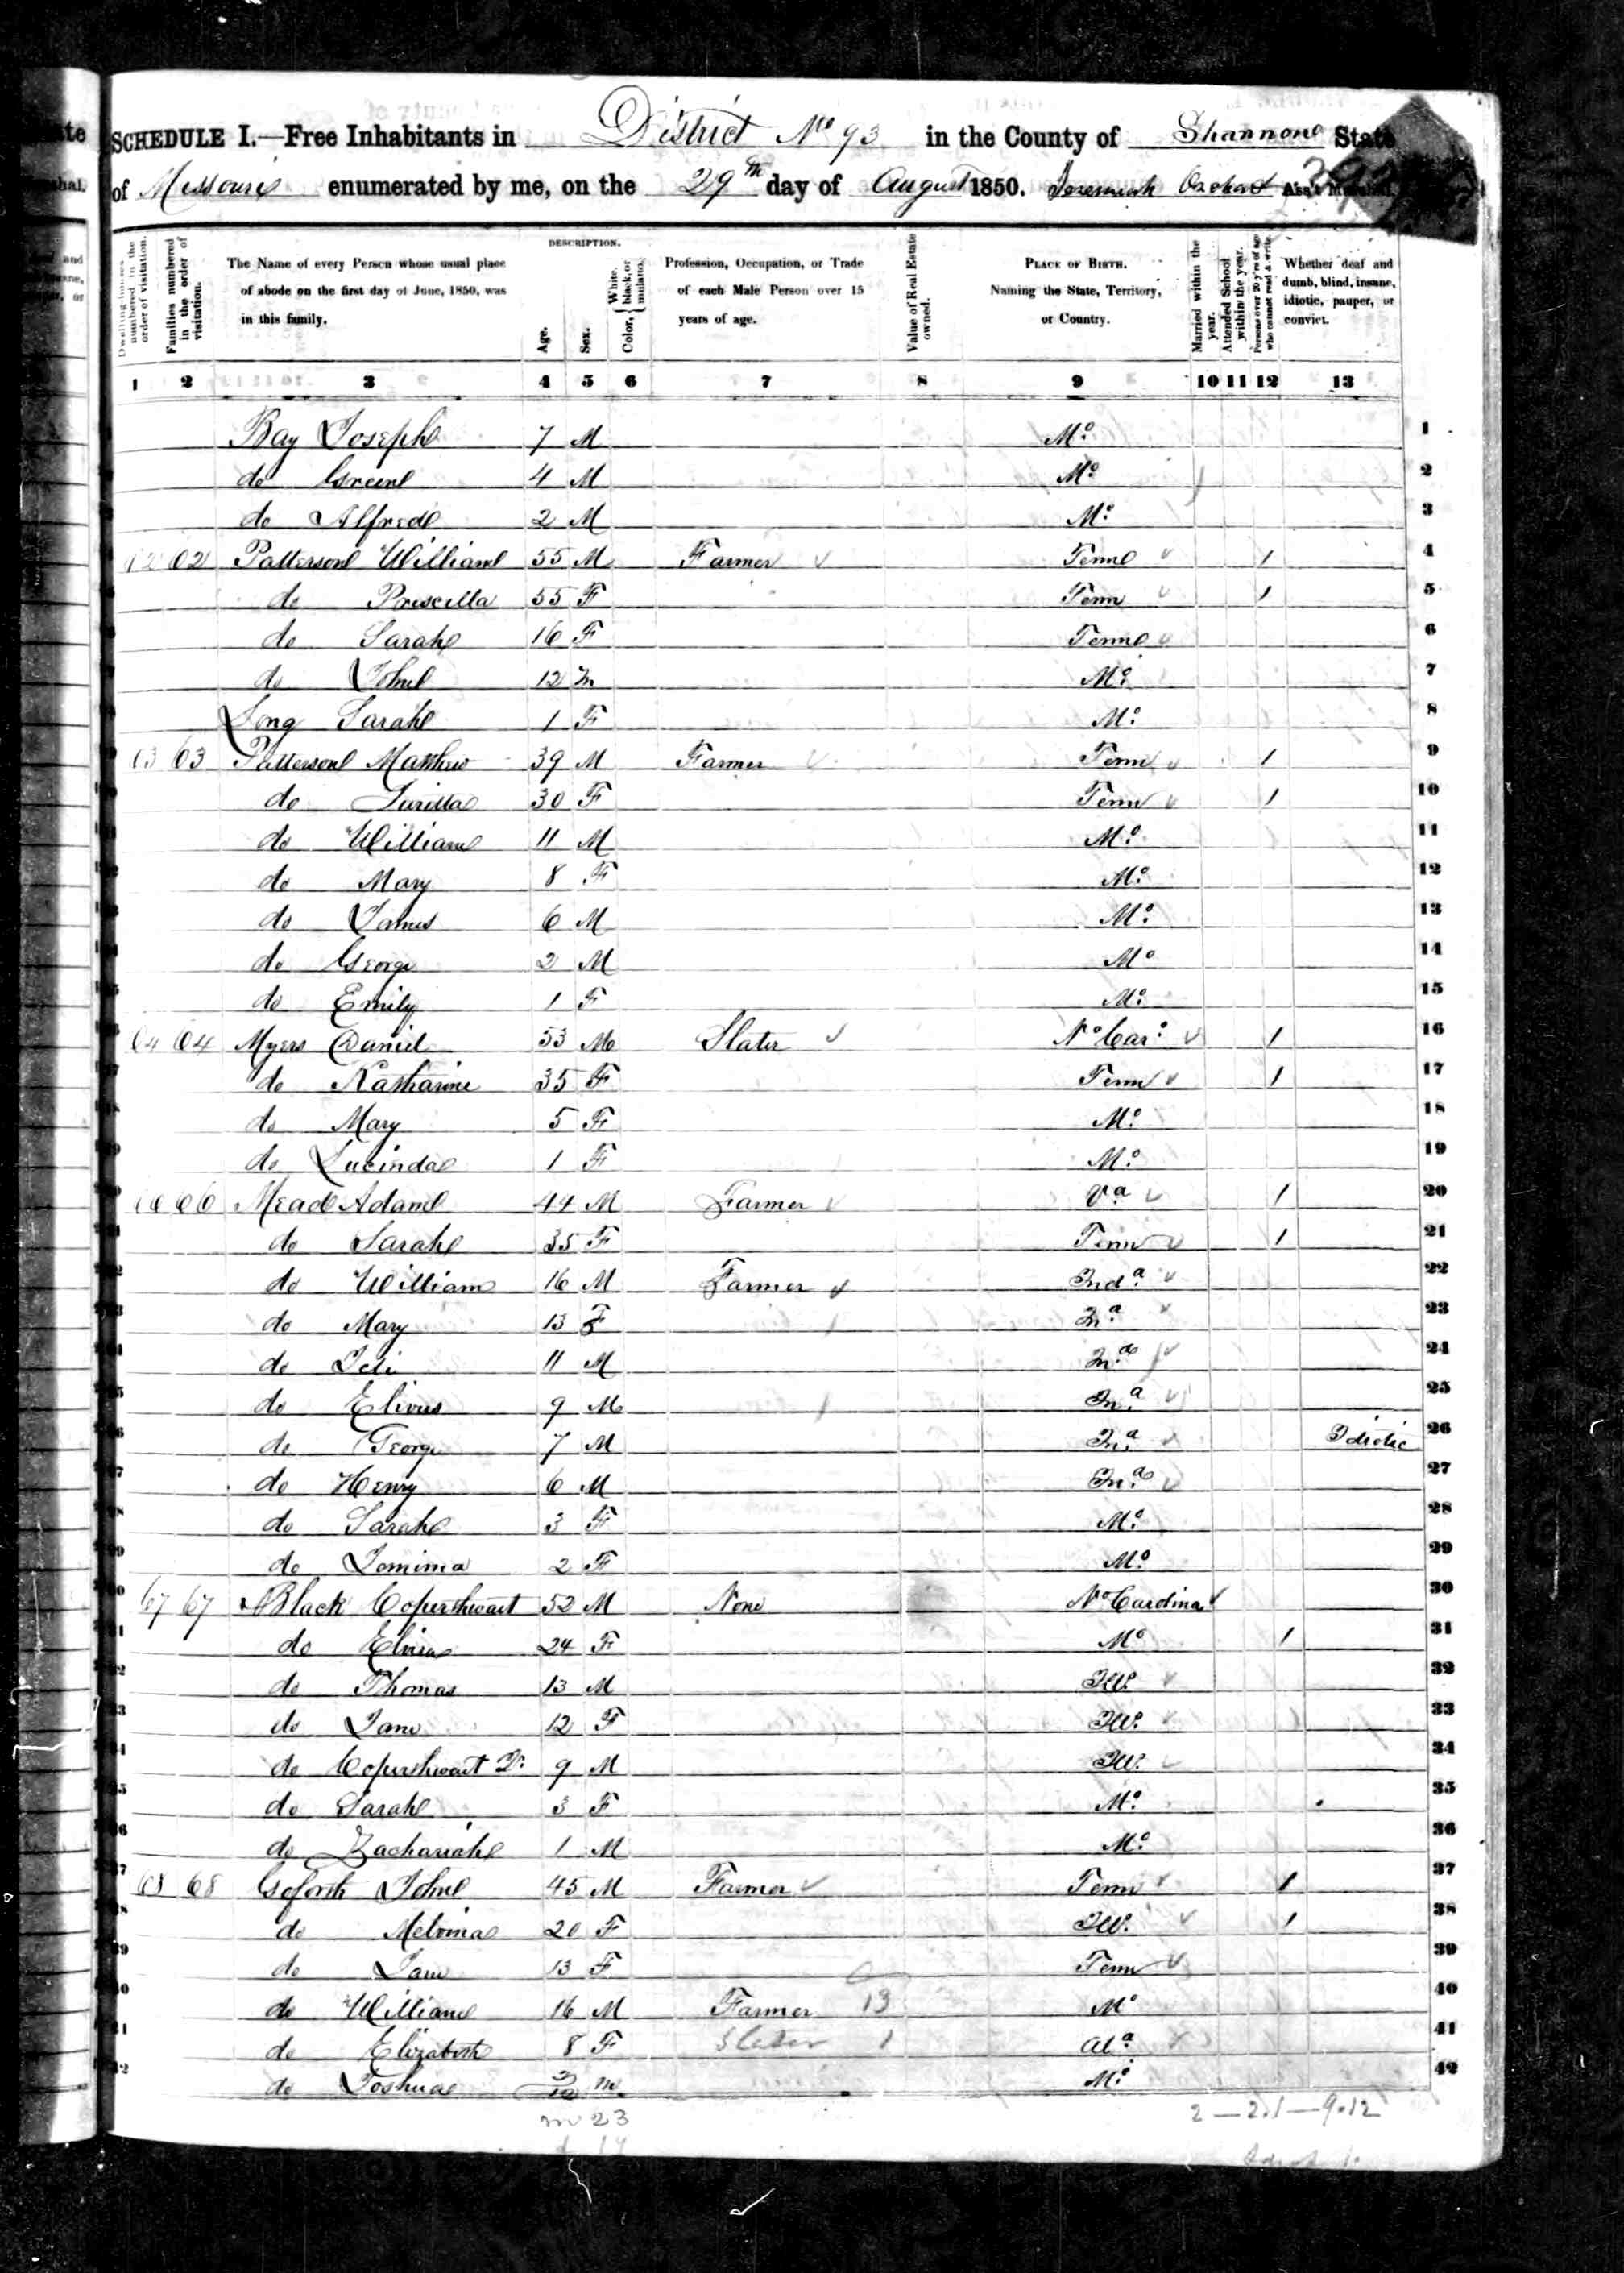 SCHEDULE I.—Free Inhabitants in District No 93 in the County of Shannon State
of Missouri enumerated by me, on the 29th day of August 1850. Jeremiah Orchard Ass't Marshal.
Dwelling-houses numbered in the order of visitation.
Families numbered in the order of visitation.
The Name of every Person whose usual place of abode on the first day of June, 1850, was in this family.
DESCRIPTION.
Age.
Sex.
Color, { White, black, or mulatto.
Profession, Occupation, or Trade of each Male Person over 15 years of age.
Value of Real Estate owned.
PLACE OF BIRTH. Naming the State, Territory, or Country.
Married within the year.
Attended School within the year.
Persons over 20 y'rs of age who cannot read & write.
Whether deaf and dumb, blind, insane, idiotic, pauper, or convict.
1 2 3 4 5 6 7 8 9 10 11 12 13
Bay Joseph 7 M Mo. 1
do Green 4 M Mo. 2
do Alfred 2 M Mo. 3
62 62 Patterson William 55 M Farmer Tenn 1 4
do Priscilla 55 F Tenn 1 5
do Sarah 16 F Tenn 6
do John 12 M Mo. 7
Long Sarah 1 F Mo. 8
63 63 Patterson Matthew 39 M Farmer Tenn 1 9
do 30 F Tenn 1 10
do William 11 M Mo. 11
do Mary 8 F Mo. 12
do James 6 M Mo. 13
do George 2 M Mo 14
do Emily 1 F Mo. 15
64 64 Myers Daniel 53 M Slater No Car. 1 16
do Katharine 35 F Tenn 1 17
do Mary 5 F Mo. 18
do Lucinda 1 F Mo. 19
66 66 Mead Adam 44 M Farmer Va 1 20
do Sarah 35 F Tenn 1 21
do William 16 M Farmer Inda. 22
do Mary 13 F Ina. 23
do 11 M Ina. 24
do 9 M Ina. 25
do George 7 M Ina. Idiotic 26
do Henry 6 M Ina. 27
do Sarah 3 F Mo. 28
do Jemima 2 F Mo. 29
67 67 Black Coperthwait 52 M None No Carolina 30
do Elvira 24 F Mo 1 31
do Thomas 13 M Ill. 32
do Jane 12 F Ill. 33
do Coperthwait 9 M Ill. 34
do Sarah 3 F Mo. 35
do Zachariah 1 M Mo. 36
68 68 Goforth John 45 M Farmer Tenn 1 37
do Melvina 20 F Ill. 1 38
do Jane 13 F Tenn 39
do William 16 M Farmer 13 Mo 40
do Elizabeth 8 F Slater 1 Ala. 41
do Joshua M Mo. 42
m 23
2 — 2.1 — 9.12